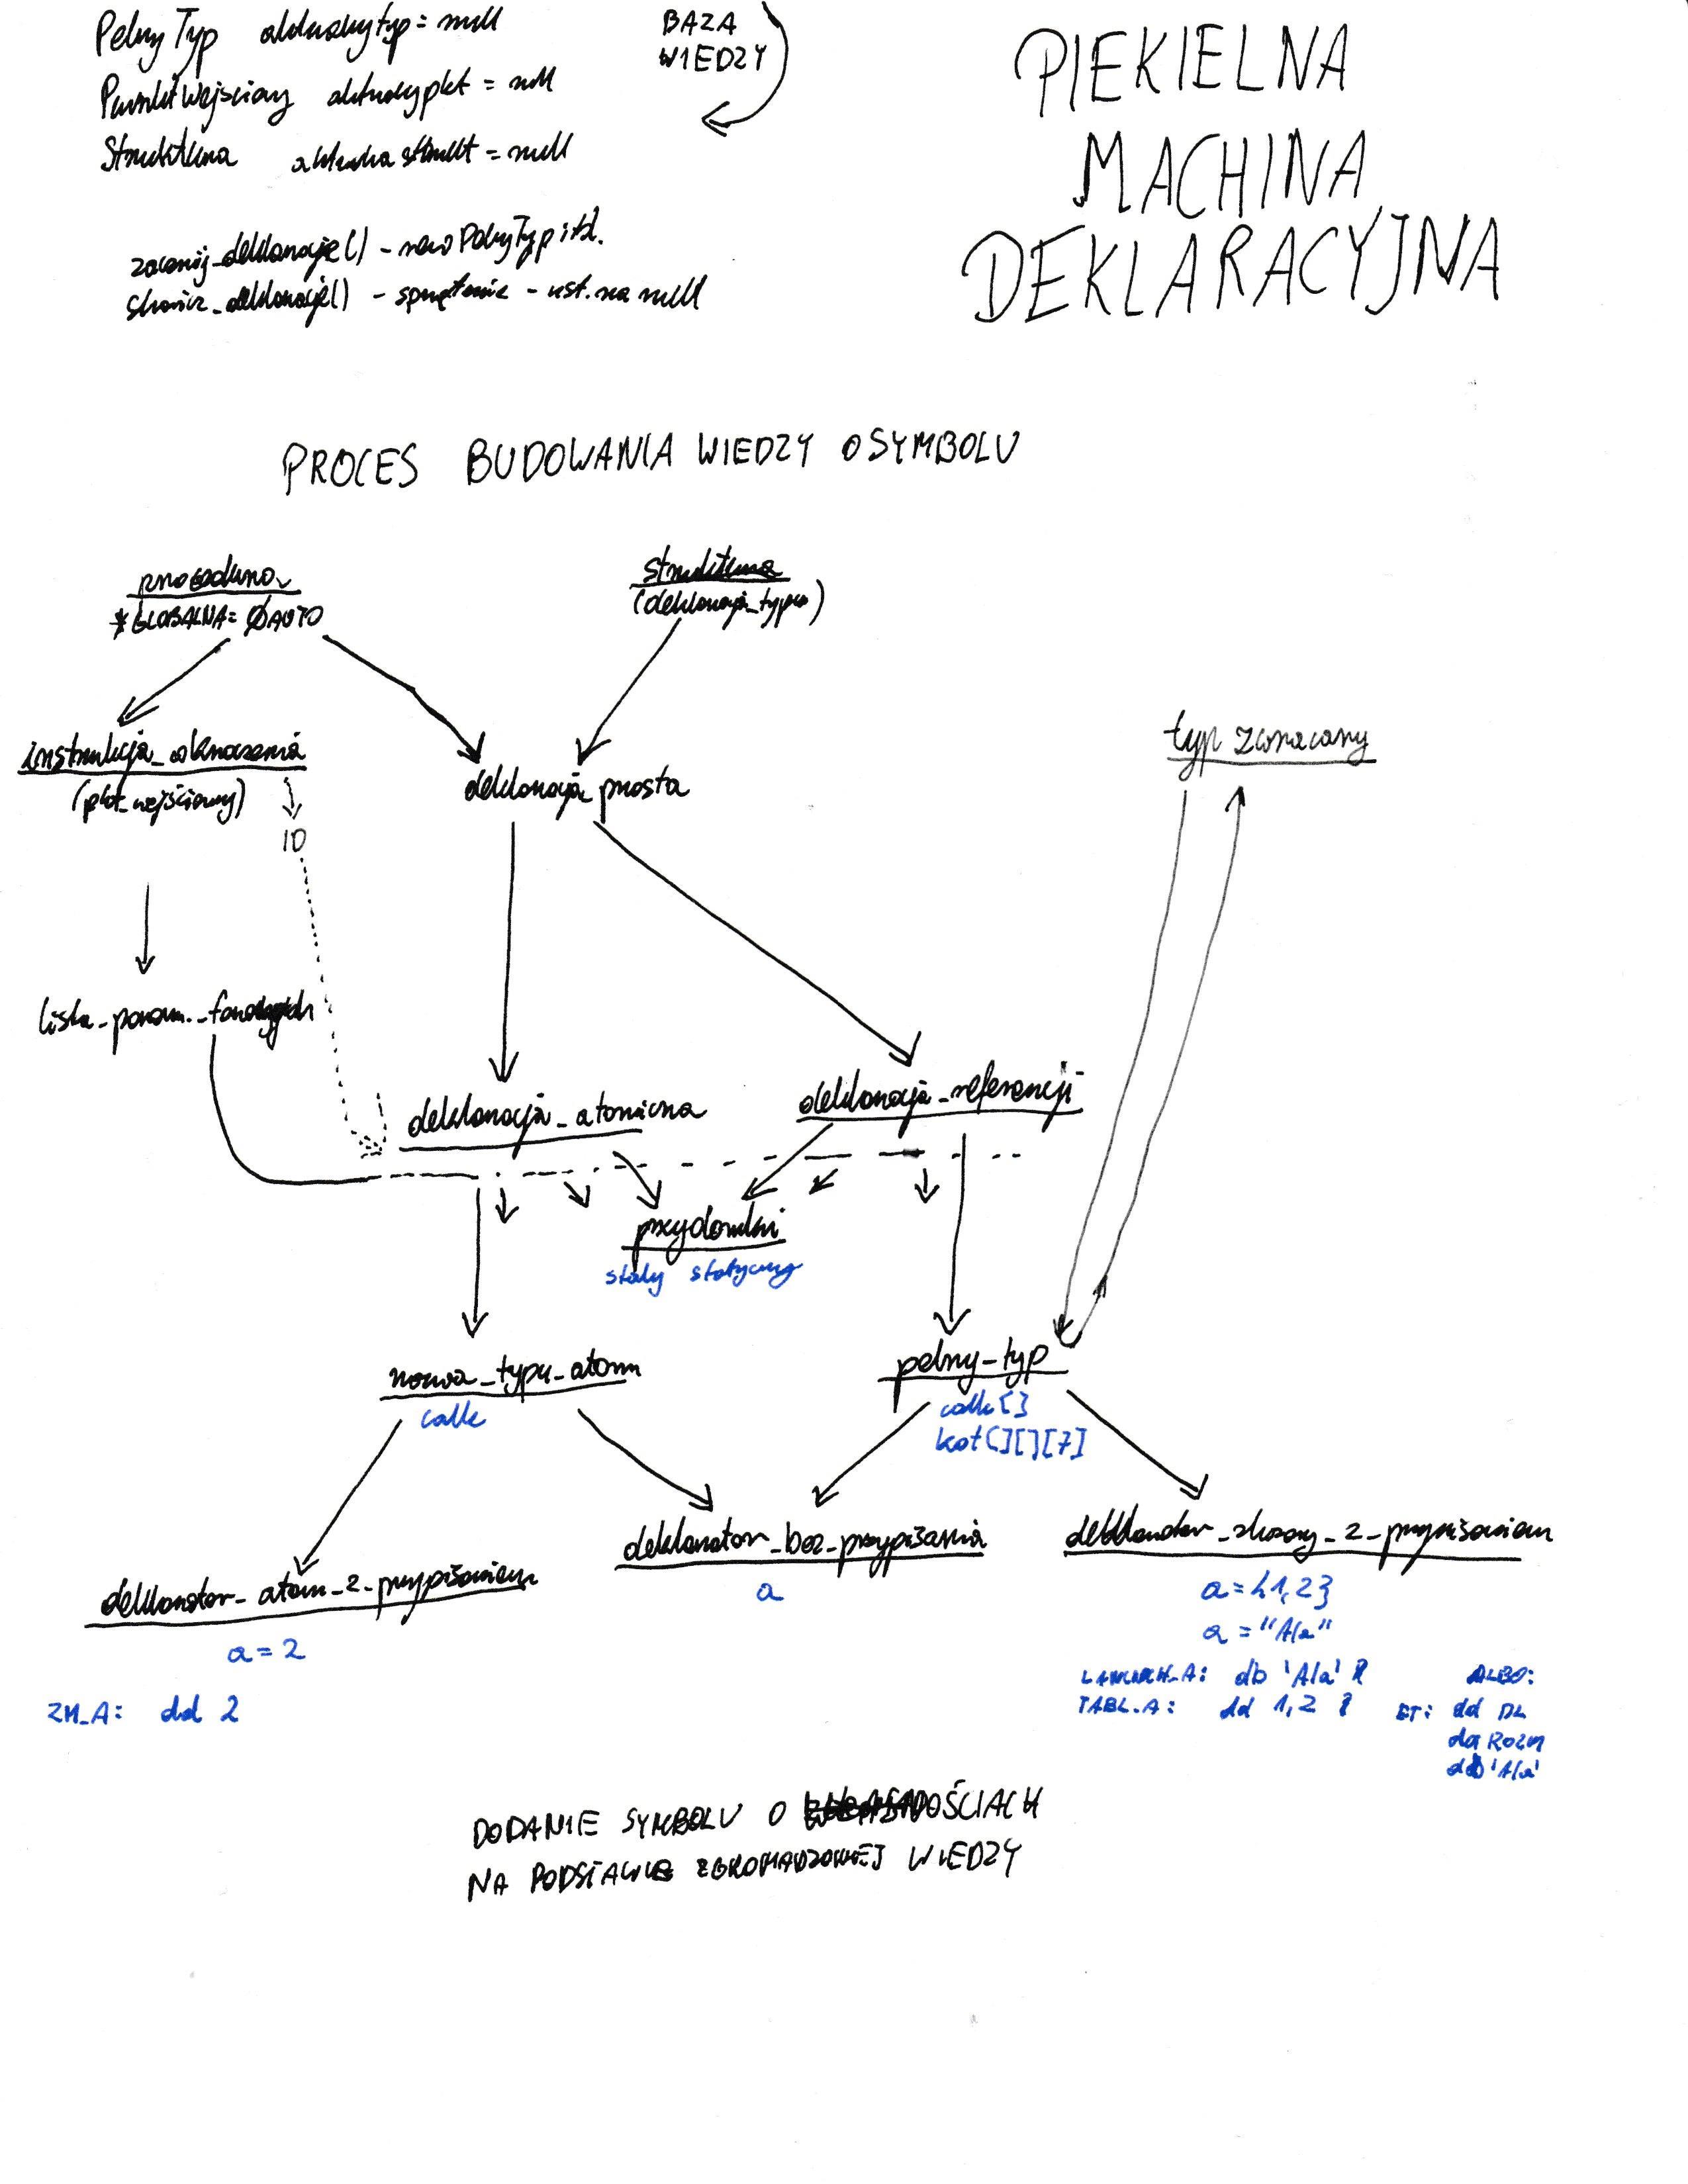 PełnyTyp aktualny typ = null
PunktWejściowy aktualny pkt = null
Struktura aktualna strukt = null
BAZA
WIEDZY
PIEKIELNA
MACHINA
DEKLARACYJNA
zacznij_deklarację() - new PełnyTyp itd.
skończ_deklarację() - sprzątanie - ust. na null
PROCES BUDOWANIA WIEDZY O SYMBOLU
procedura
*GLOBALNA = ØAUTO
struktura
(deklaracja_typu)
instrukcja_oznaczenia
(pkt_wejściowy)
ID
deklaracja_prosta
typ zwracany
lista_param._formalnych
deklaracja_atomiczna
deklaracja_referencji
przydomki
stały statyczny
nazwa_typu_atom
całk
pełny_typ
całk[]
kot[][][7]
deklarator_atom_z_przypisaniem
a = 2
ZM_A: dd 2
deklarator_bez_przypisania
a
deklarator_złożony_z_przypisaniem
a = {1,2}
a = "Ala"
ŁAŃCUCH_A: db 'Ala' ?
TABL.A: dd 1,2 ?
ALBO:
ET: dd DŁ
dd ROZM
db 'Ala'
DODANIE SYMBOLU O OŚCIACH
NA PODSTAWIE ZGROMADZONEJ WIEDZY